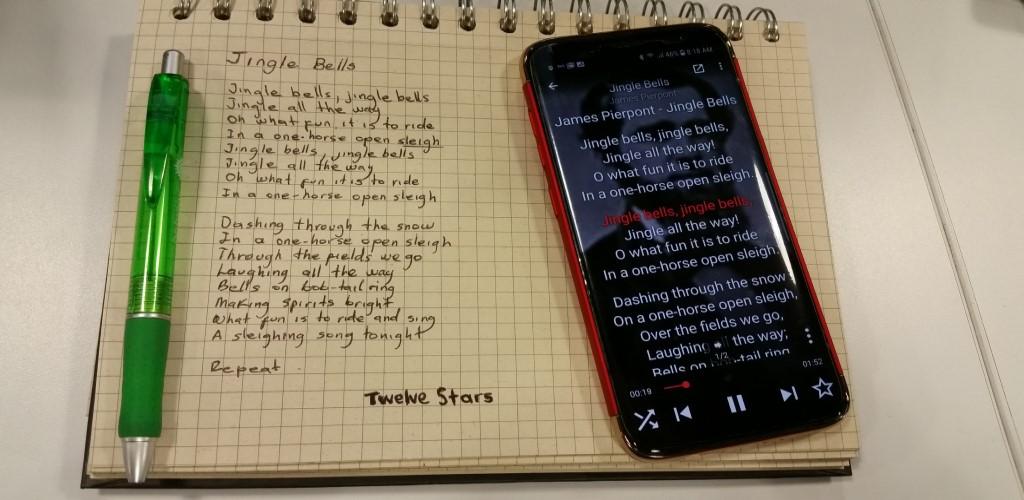 Jingle Bells
Jingle bells, jingle bells
Jingle all the way
Oh what fun it is to ride
In a one-horse open sleigh
Jingle bells, jingle bells
Jingle all the way
Oh what fun it is to ride
In a one-horse open sleigh
Dashing through the snow
In a one-horse open sleigh
Through the fields we go
Laughing all the way
Bells on bob-tail ring
Making spirits bright
What fun is to ride and sing
A sleighing song tonight
Repeat.
Twelve Stars
46% 8:18 AM
Jingle Bells
James Pierpont
James Pierpont - Jingle Bells
Jingle bells, jingle bells,
Jingle all the way!
O what fun it is to ride
In a one-horse open sleigh.
Jingle bells, jingle bells,
Jingle all the way!
O what fun it is to ride
In a one-horse open sleigh.
Dashing through the snow
On a one-horse open sleigh,
Over the fields we go,
Laughing the way;
1/2
Bells on tail ring
00:19
01:52